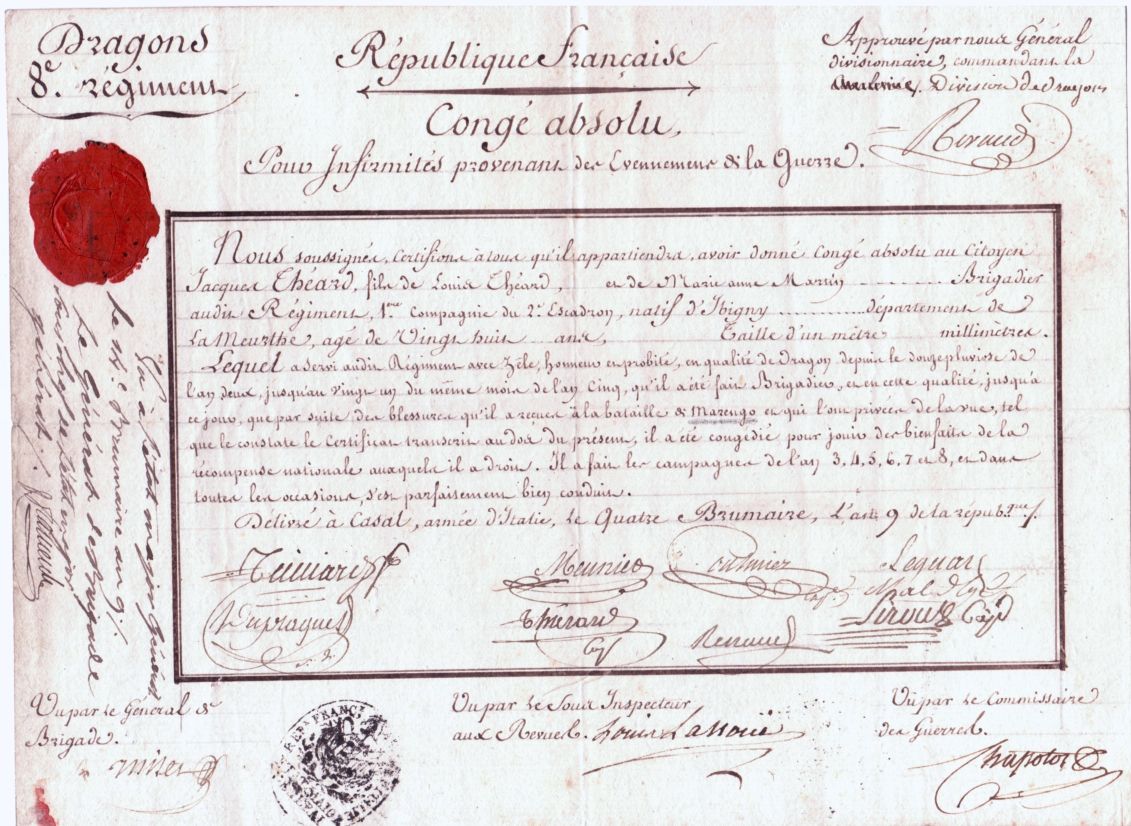 Dragons
8e. régiment
République Française
Congé absolu,
Pour Infirmités provenant des Evennemens de la Guerre.
Approuvé par nous Général
divisionnaire, commandant la
Division de dragons
Nous soussignés, Certifions à tous qu'il appartiendra, avoir donné Congé absolu au Citoyen
Jacques Théard, fils de Louis Théard, et de Marie anne Martin Brigadier
audit Régiment, 1ere Compagnie du 2e Escadron, natif d'Ibigny département de
La Meurthe, agé de Vingt huit ans, Taille d'un mètre millimètres.
Lequel a servi audit Régiment avec Zèle, honneur et probité, en qualité de Dragon depuis le douze pluviose de
l'an deux, jusqu'au vingt un du même mois de l'an Cinq, qu'il a été fait Brigadier, et en cette qualité, jusqu'à
ce jour, que par suite des blessures qu'il a recues à la bataille de Marengo et qui l'ont privées de la vue, tel
que le constate le Certificat transcrit au dos du présent, il a été congédié pour jouir des bienfaits de la
récompense nationale auxquels il a droit. Il a fait les campagnes de l'an 3, 4, 5, 6, 7 et 8, et dans
toutes les occasions, s'est parfaitement bien conduit.
Délivré à Casal, armée d'Italie, le Quatre Brumaire, L'an 9 de la répub.que /.
Meunier
Vu à l'état major général
Brumaire an 9 /.
Le Général de Brigade
sous chef de l'état major
général /.
Vu par le Général de
Brigade.
Vu par le Sous Inspecteur
aux Revues. Louis Lanoue
Vu par le Commissaire
des Guerres.